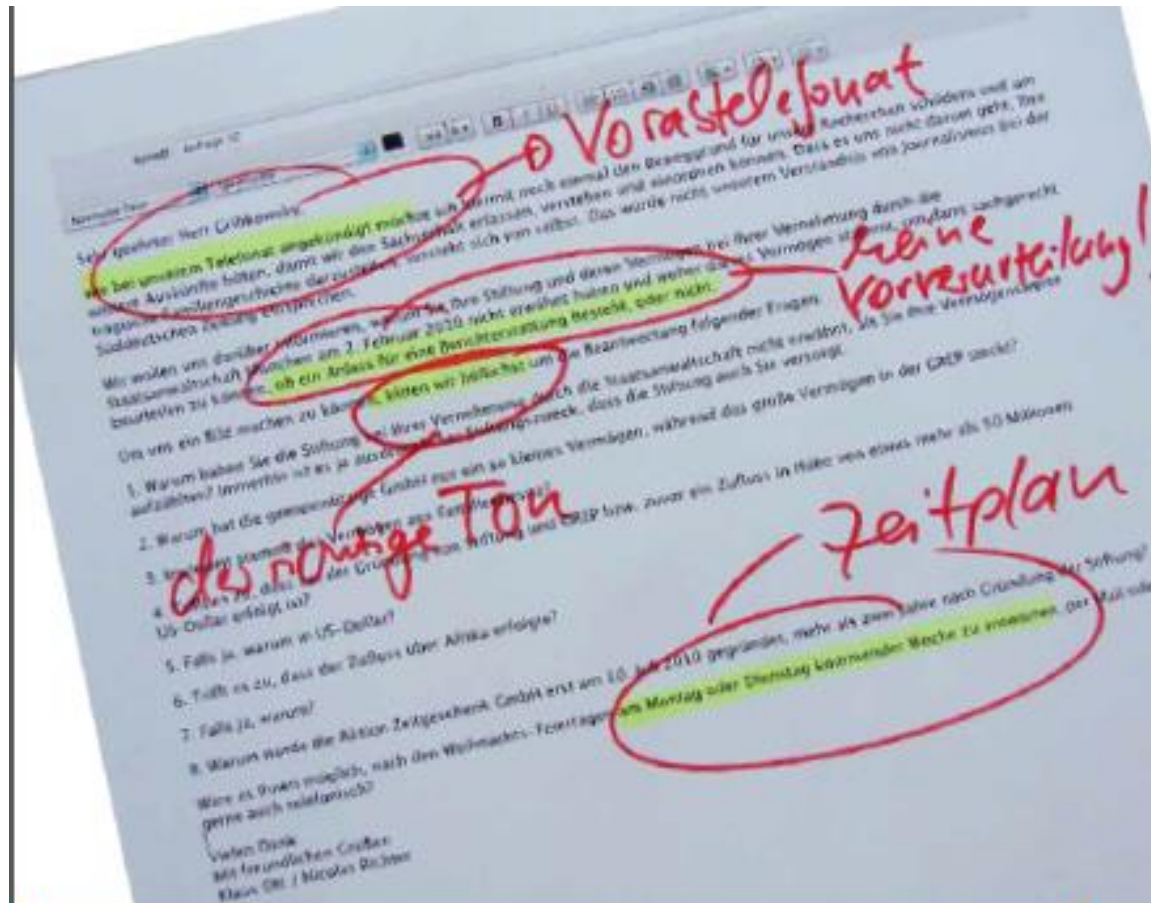 Vorabtelefonat
Sehr geehrter Herr Gribkowsky,
wie bei unserem Telefonat angekündigt möchte ich hiermit noch einmal den Beweggrund für unsere Recherchen schildern und um
weitere Auskünfte bitten, damit wir den Sachverhalt erfassen, verstehen und einordnen können. Dass es uns nicht darum geht, Ihre
Familiengeschichte darzustellen, versteht sich von selbst. Das würde nicht unserem Verständnis von Journalismus bei der
Süddeutschen Zeitung entsprechen.
keine
Vorverurteilung!
Wir wollen uns darüber informieren, warum Sie Ihre Stiftung und deren Vermögen bei Ihrer Vernehmung durch die
Staatsanwaltschaft München am 7. Februar 2010 nicht erwähnt haben und woher dieses Vermögen stammt, um dann sachgerecht
beurteilen zu können, ob ein Anlass für eine Berichterstattung besteht, oder nicht.
Um uns ein Bild machen zu können, bitten wir höflichst um die Beantwortung folgender Fragen.
1. Warum haben Sie die Stiftung bei Ihrer Vernehmung durch die Staatsanwaltschaft nicht erwähnt, als Sie Ihre Vermögenswerte
aufzählten? Immerhin ist es ja Stiftungszweck, dass die Stiftung auch Sie versorgt.
2. Warum hat die gemeinnützige nur ein so kleines Vermögen, während das große Vermögen in der GREP steckt?
der richtige Ton
3. stammt das Vermögen aus
4. zu, dass der Gründung von Stiftung und GREP bzw. zuvor ein Zufluss in Höhe von etwas mehr als 50 Millionen
US-Dollar erfolgt ist?
5. Falls ja, warum in US-Dollar?
6. Trifft es zu, dass der Zufluss über Afrika erfolgte?
7. Falls ja, warum?
Zeitplan
8. Warum wurde die Aktion Zeitgeschenk GmbH erst am 10. Juli 2010 gegründet, mehr als zwei Jahre nach Gründung der Stiftung?
Wäre es Ihnen möglich, nach den Weihnachts-Feiertagen am Montag oder Dienstag kommender Woche zu antworten, per Mail oder
gerne auch telefonisch?
Vielen Dank
Mit freundlichen Grüßen
Klaus Ott / Nicolas Richter